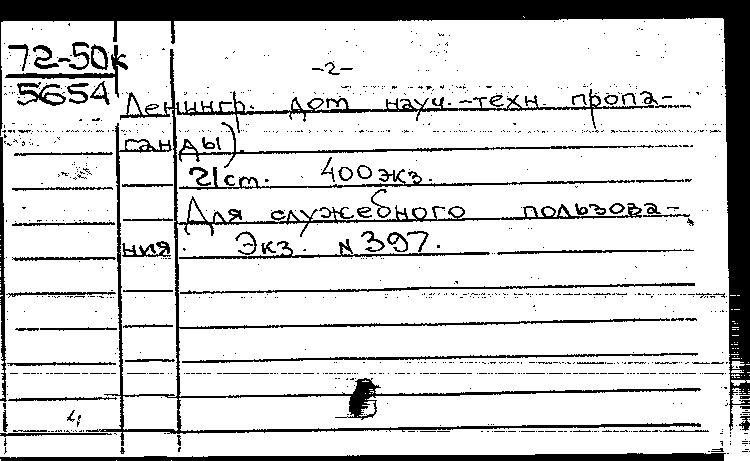 72-50к
5654
-2-
Ленингр. дом науч.-техн. пропа-
ганды).
21 ст. 400 экз.
Для служебного пользова-
ния. Экз. N 397.